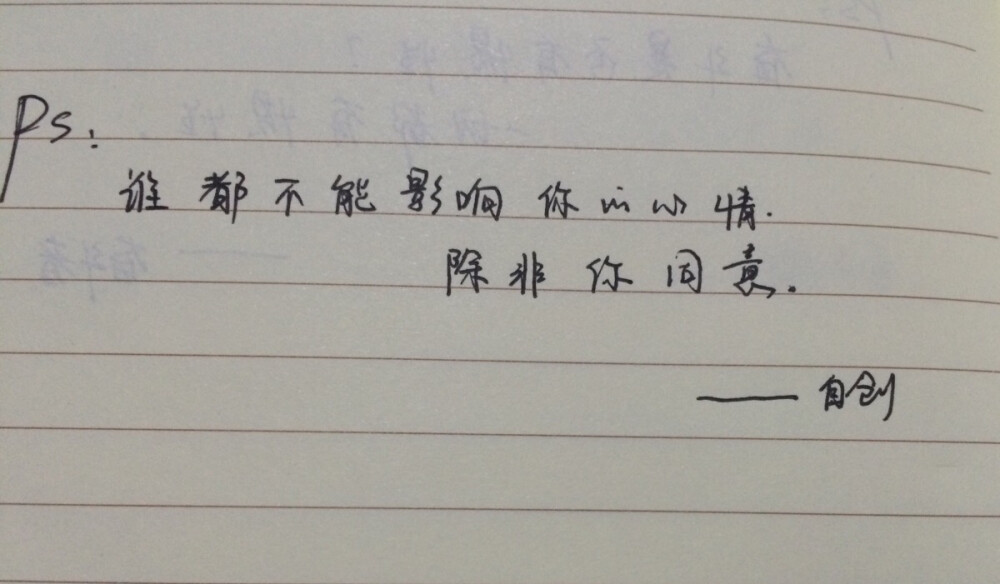 Ps:
谁都不能影响你的心情.
除非你同意.
——自创